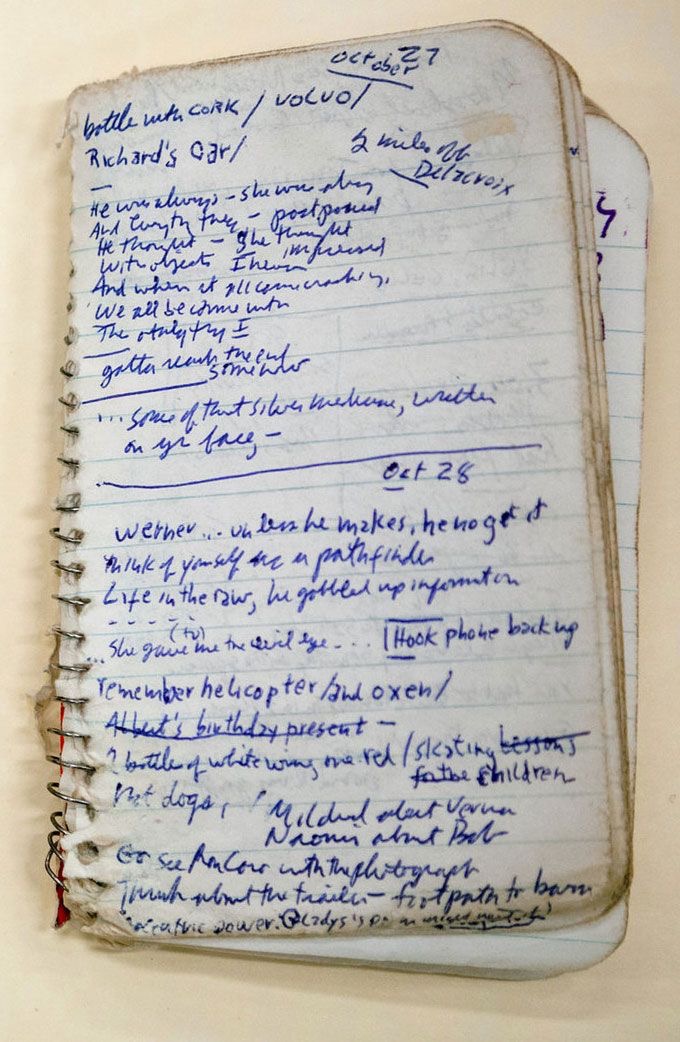 October 27
bottle with cork / volvo /
Richard's Car /
2 miles off
Delacroix
He was always - she was always
And they - postponed
He thought - She thought
With objects I never impressed
And when it all came crashing,
We all become
The I
gotta reach the end
somehow
... some of that silver medicine, written
on yr face, -
Oct 28
werner ... unless he makes, he no get it
think of yourself as a pathfinder
Life in the raw, he gobbled up information
- - - - -
(to)
... She gave me the evil eye - ... Hook phone back up
remember helicopter / and oxen /
Albert's birthday present -
2 bottle of white wine, one red / skating lessons
for the children
Hot dogs, /
Mildred about Verna
Naomi about Bob
Go see with the photograph
about the trailer - footpath to barn
power. Gladys's